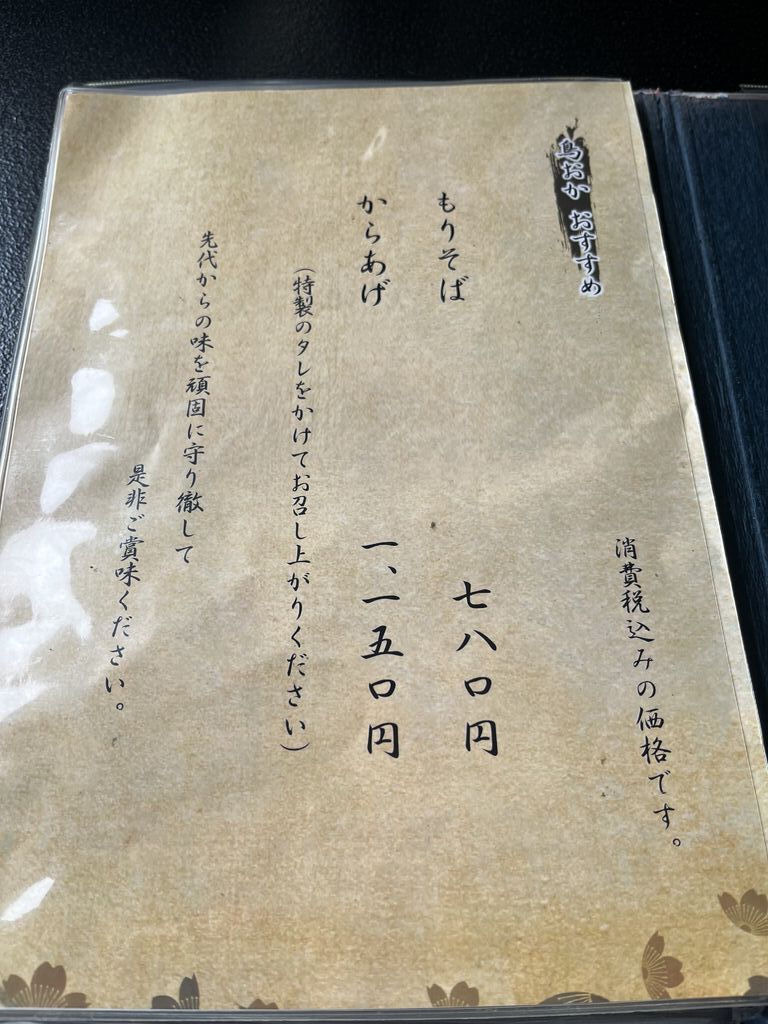 鳥おか おすすめ
消費税込みの価格です。
もりそば 七八〇円
からあげ 一、一五〇円
(特製のタレをかけてお召し上がりください)
先代からの味を頑固に守り徹して
是非ご賞味ください。